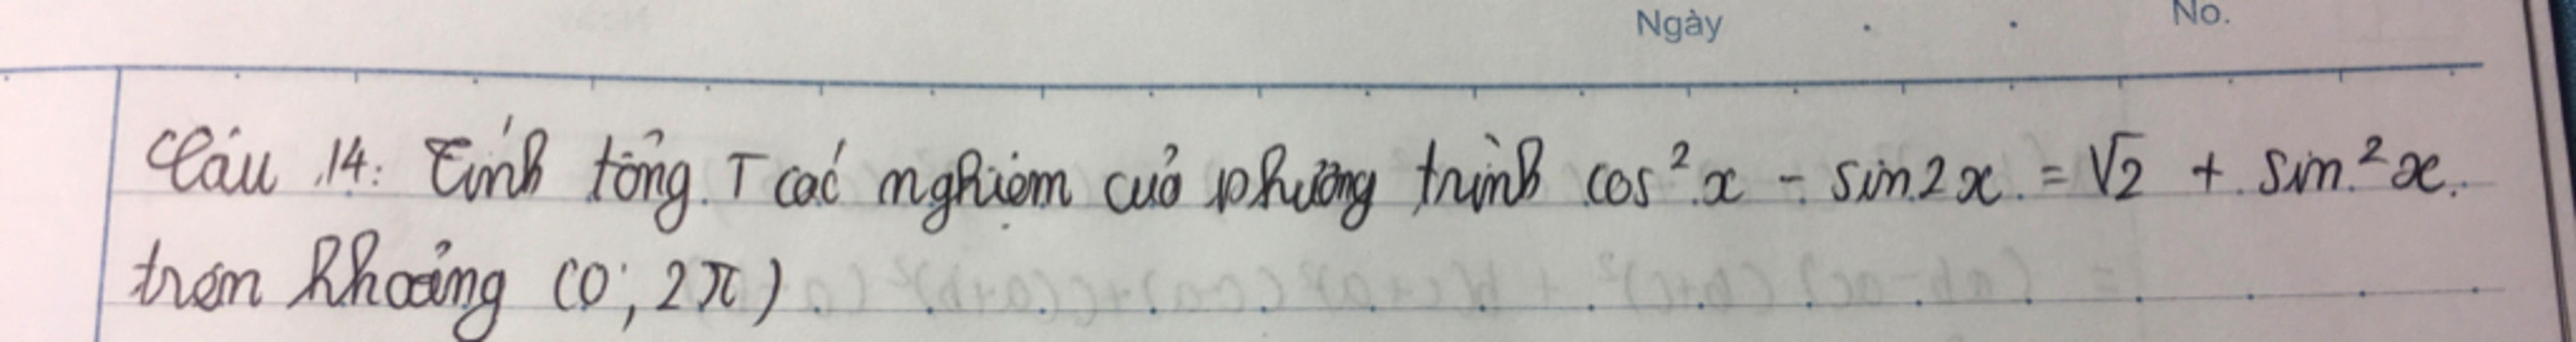 Ngày . . No.
Câu 14: Tính tổng T các nghiệm của phương trình cos²x - sin2x = √2 + sin²x.
trên khoảng (0; 2π)